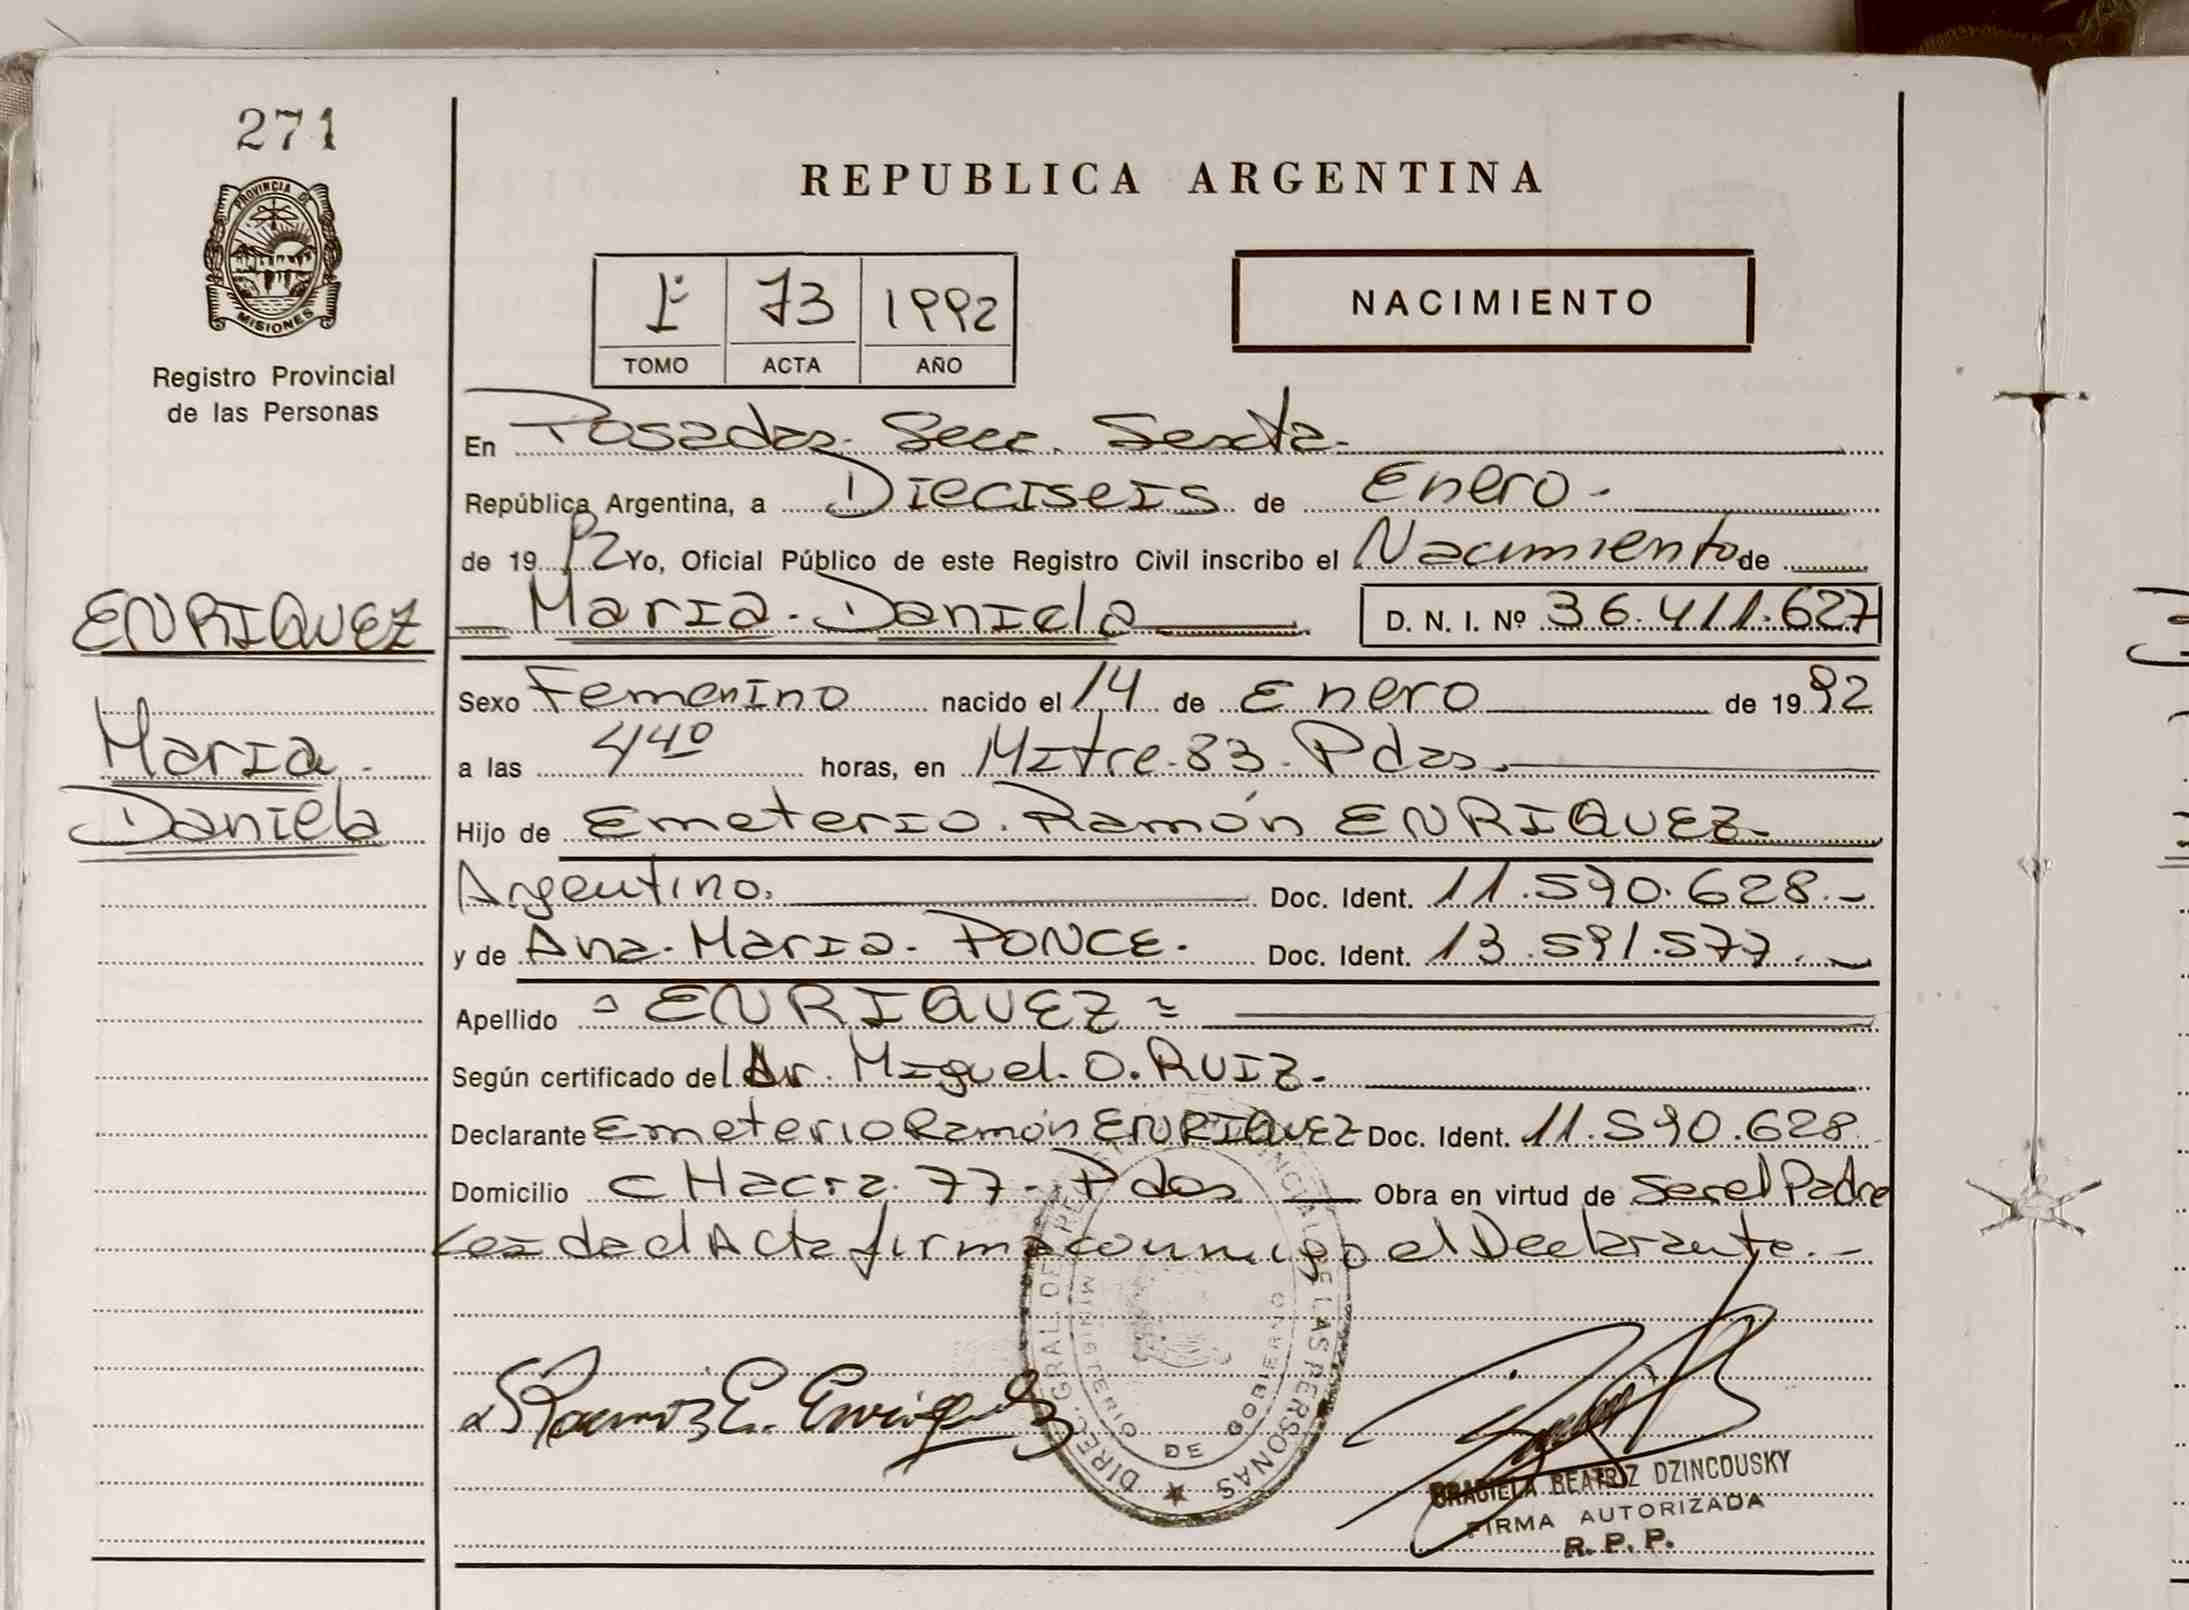 271
PROVINCIA DE
MISIONES
Registro Provincial
de las Personas
ENRIQUEZ
Maria
Daniela
REPUBLICA ARGENTINA
1º 73 1992
TOMO ACTA AÑO
NACIMIENTO
En Posadas. Secc. Sexta.
República Argentina, a Dieciseis de Enero.
de 1992 Yo, Oficial Público de este Registro Civil inscribo el Nacimiento de
Maria. Daniela D. N. I. Nº 36.411.627
Sexo Femenino nacido el 14 de Enero de 1992
a las 4 40 horas, en Mitre. 83. Pdas.
Hijo de Emeterio. Ramón ENRIQUEZ
Argentino. Doc. Ident. 11.590.628.-
y de Ana. Maria. PONCE. Doc. Ident. 13.591.577.-
Apellido = ENRIQUEZ =
Según certificado del Dr. Miguel. O. RUIZ.
Declarante Emeterio Ramón ENRIQUEZ Doc. Ident. 11.590.628
Domicilio CHacra. 77 - Pdas Obra en virtud de ser el Padre
Leida el Acta firma conmigo el Declarante.-
DIREC. GRAL. DEL REGISTRO PROVINCIAL DE LAS PERSONAS
MINISTERIO DE GOBIERNO
Ramón E. Enriquez
GRACIELA BEATRIZ DZINCOUSKY
FIRMA AUTORIZADA
R. P. P.